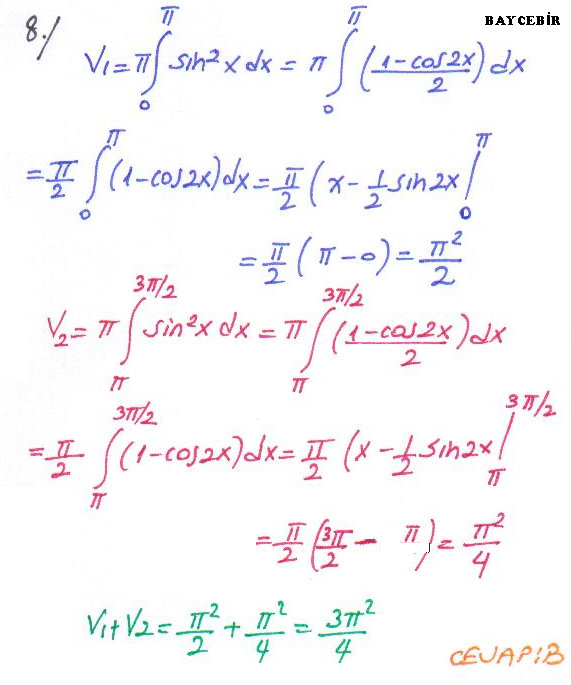 8./ BAYCEBİR
V₁ = π ∫₀^π sin²x dx = π ∫₀^π ((1-cos2x)/2) dx
= π/2 ∫₀^π (1-cos2x)dx = π/2 (x - 1/2 sin2x |₀^π
= π/2 (π-0) = π²/2
V₂ = π ∫_π^(3π/2) sin²x dx = π ∫_π^(3π/2) ((1-cos2x)/2) dx
= π/2 ∫_π^(3π/2) (1-cos2x)dx = π/2 (x - 1/2 sin2x |_π^(3π/2)
= π/2 (3π/2 - π) = π²/4
V₁+V₂ = π²/2 + π²/4 = 3π²/4
CEVAP:B